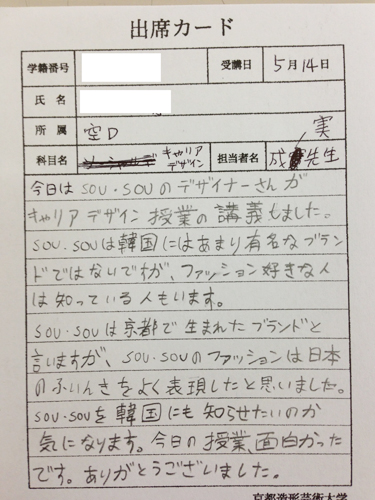 出席カード
学籍番号 受講日 5月14日
氏名
所属 空D 実
科目名 キャリアデザイン 担当者名 成 先生
今日は SOU・SOUのデザイナーさんが
キャリアデザイン 授業の講義しました。
SOU・SOUは韓国にはあまり有名なブラン
ドではないですが、ファッション好きな人
は知っている人もいます。
SOU・SOUは京都で生まれたブランドと
言いますが、SOU・SOUのファッションは日本
のふいんきをよく表現したと思いました。
SOU・SOUを韓国にも知らせたいのか
気になります。今日の授業、面白かった
です。ありがとうございました。
京都造形芸術大学